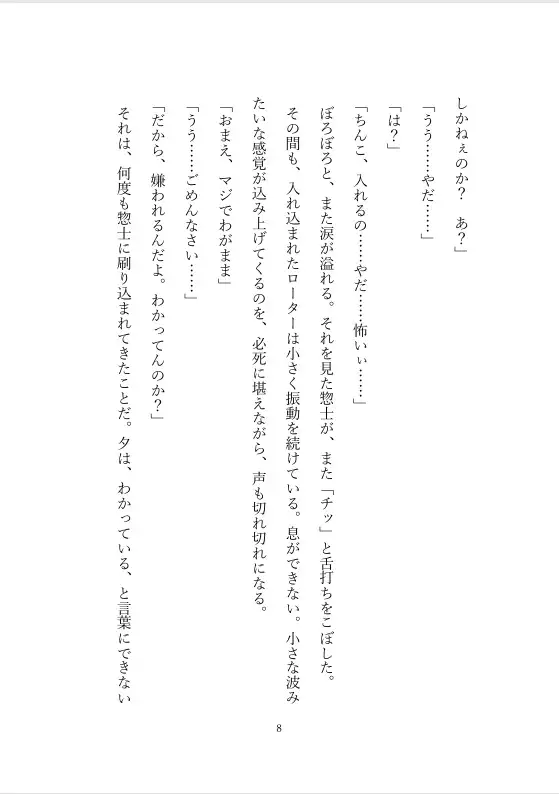 しかねぇのか？　あ？」
「うう……やだ……」
「は？」
「ちんこ、入れるの……やだ……怖いぃ……」
ぼろぼろと、また涙が溢れる。それを見た惣士が、また「チッ」と舌打ちをこぼした。
その間も、入れ込まれたローターは小さく振動を続けている。息ができない。小さな波み
たいな感覚が込み上げてくるのを、必死に堪えながら、声も切れ切れになる。
「おまえ、マジでわがまま」
「うう……ごめんなさい……」
「だから、嫌われるんだよ。わかってんのか？」
それは、何度も惣士に刷り込まれてきたことだ。夕は、わかっている、と言葉にできない
8